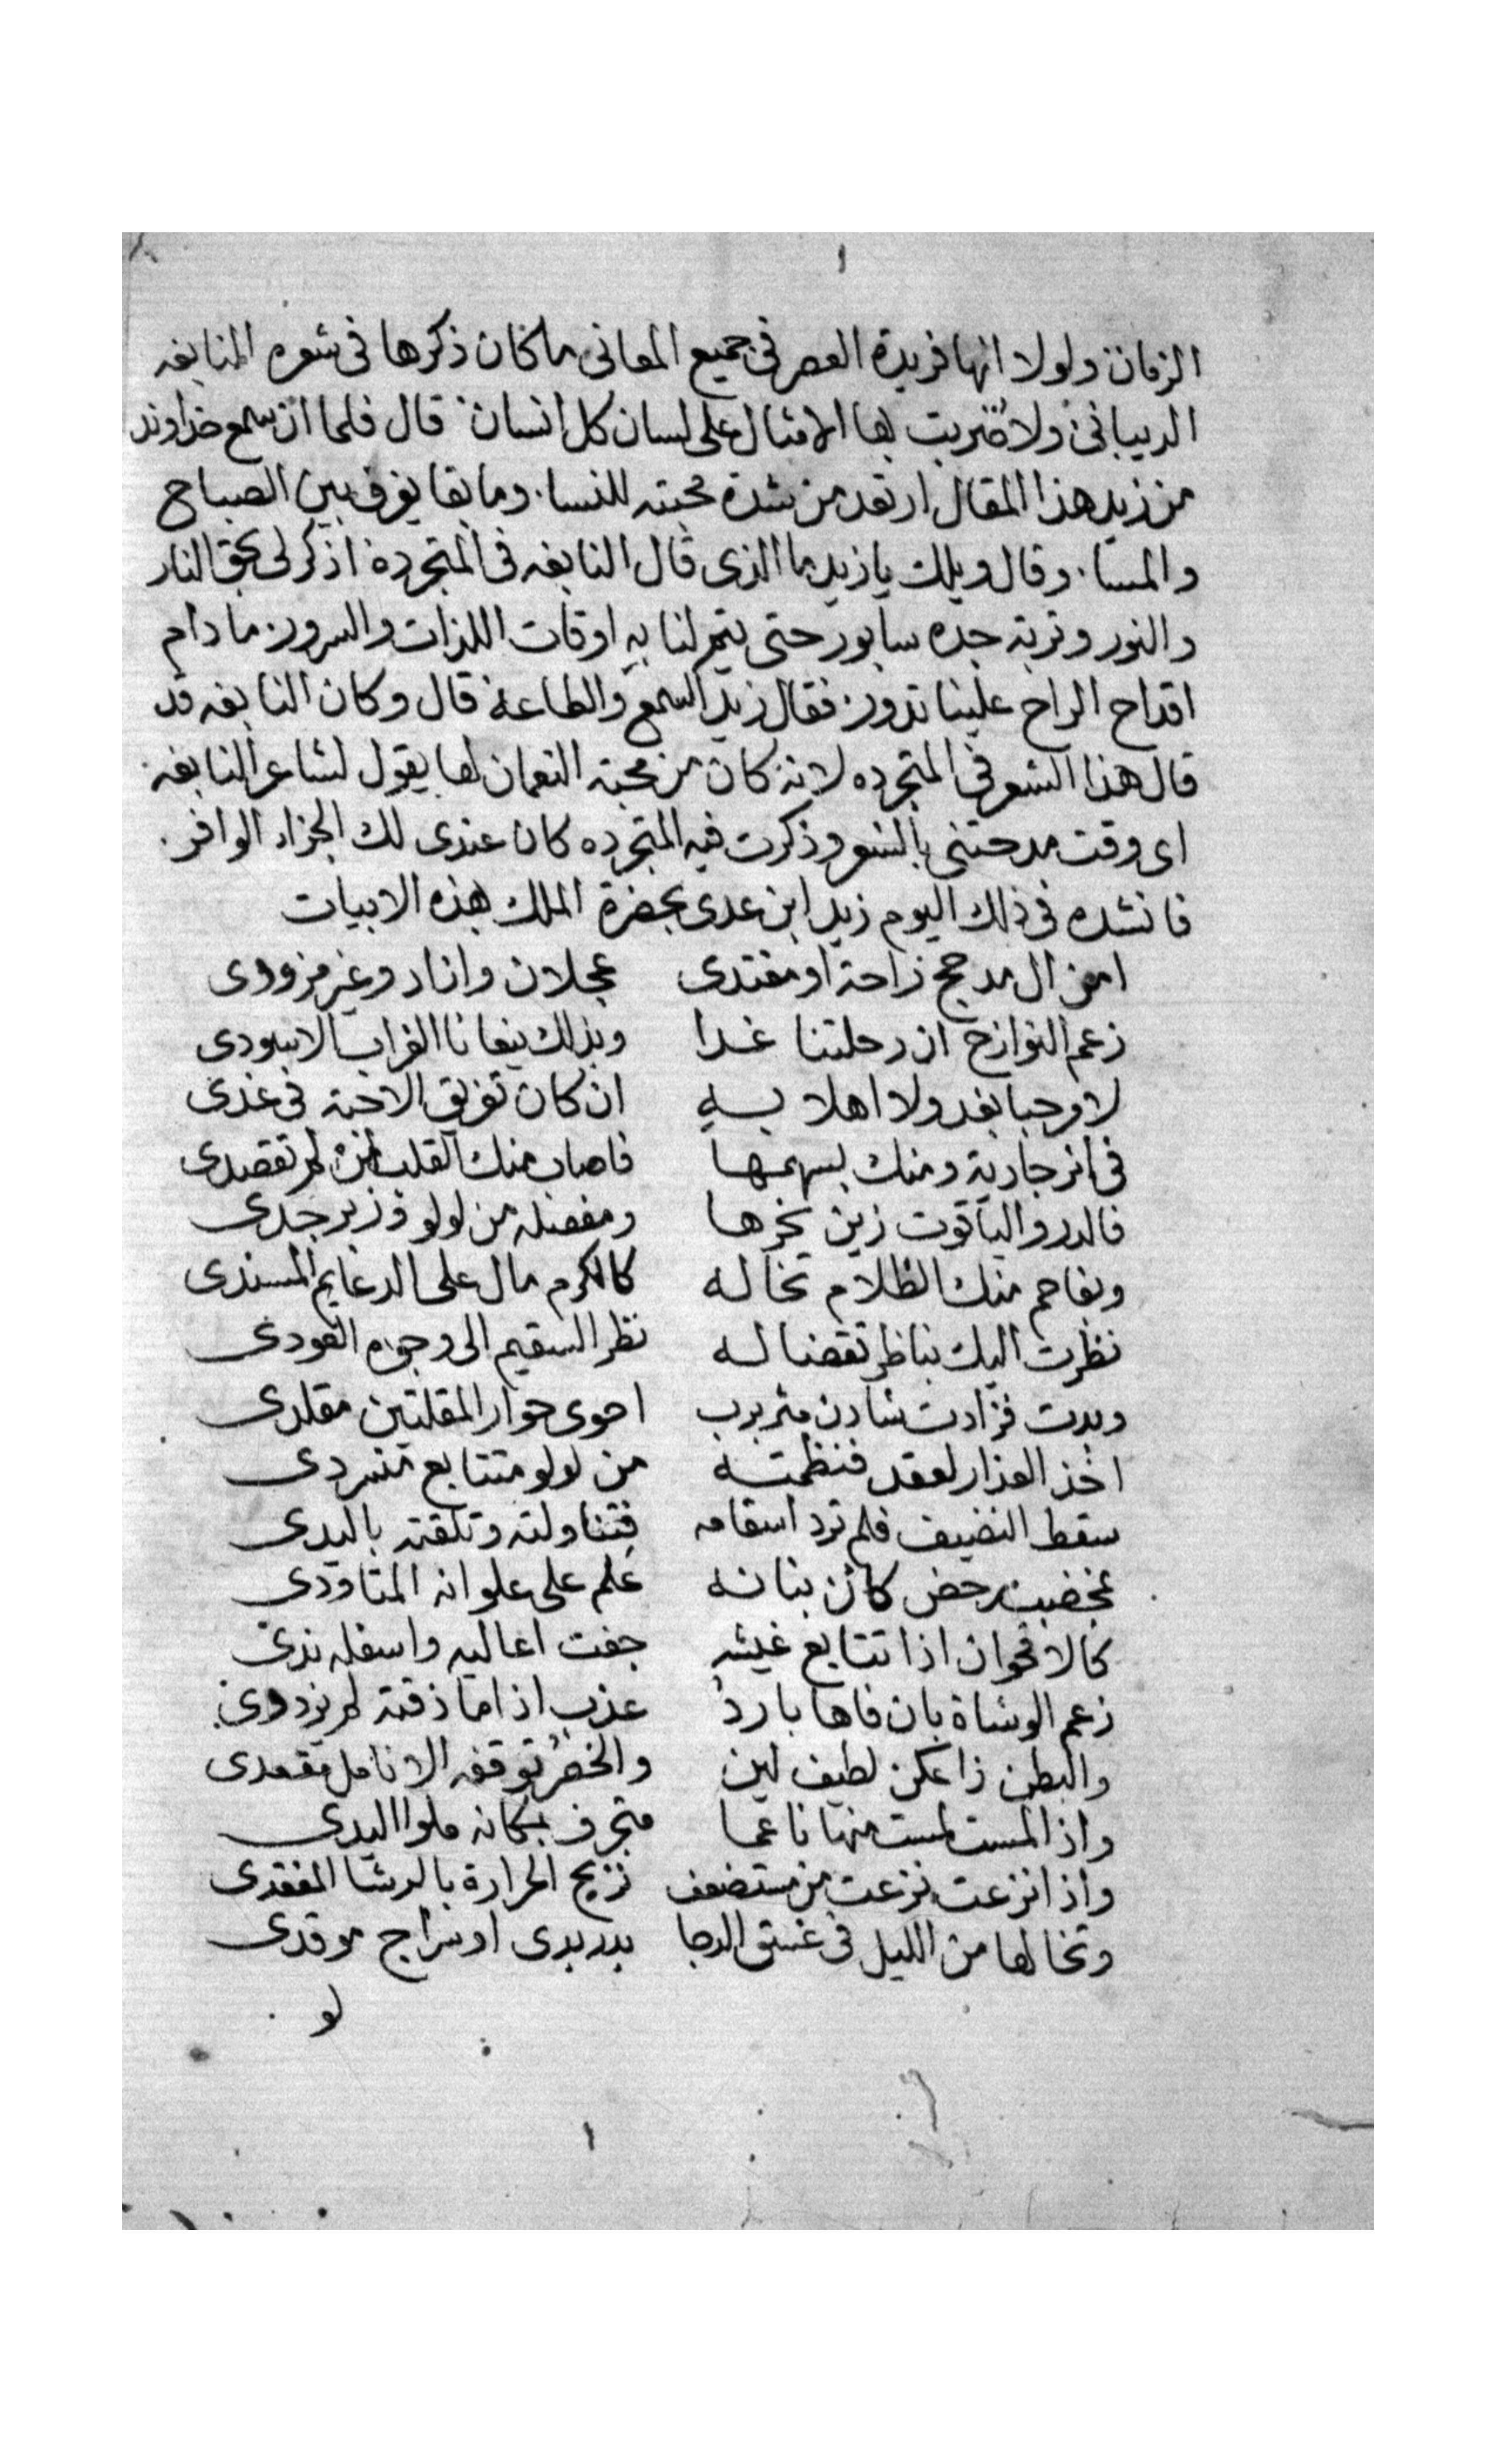 ١
الزمان ولولا انها فريدة العصر في جميع المعاني ما كان ذكرها في شعره النابغه
الديباني ولا ضربت بها الامثال على لسان كل انسان قال فلما ان سمع خداوند
من زيد هذا المقال ارتعد من شدة محبته للنسا وما بقا يفرق بين الصباح
والمسا وقال ويلك يا زيد ما الذي قال النابغه في المتجردة اذكر لي بحق النار
والنور وتربة جده سابور حتى يتم لنا به اوقات اللذات والسرور ما دام
اقداح الراح علينا تدور فقال زيد السمع والطاعة قال وكان النابغه قد
قال هذا الشعر في المتجرده لانه كان من محبة النعمان لها يقول لشاعر النابغه
اي وقت مدحتني بالشعر وذكرت فيه المتجرده كان عندي لك الجزاء الوافر
فانشده في ذلك اليوم زيد ابن عدي بحضرة الملك هذه الابيات
امن ال مدحج زاحة او مغتدي عجلان وانا د وغير مزوودي
زعم النوازح ان رحلتنا غدا وبذلك ينعانا الغراب الاسودي
لا مرحبا بغد ولا اهلا به ان كان تفريق الاحبة في غدي
في اثر جارية ومنك بسهمها فاصاب منك القلب ان لم تقصدي
فالدر والياقوت زين نحرها ومفصله من لولو وزبرجدي
وبفاحم منك الظلام تخاله كالكرم مال على الدعايم المسندي
نظرت اليك بناظر تقضا له نظر السقيم الى وجوه العودي
وبدت فزادت شادن مثربرب احوى حوار المقلتين مقلدي
اخذ العذار لعقد فنظمته من لولو متتابع متسردي
سقط النضيف فلم ترد اسقامه فتناولته وتلقته باليدي
بخضب رخص كائن بنانه علم على علوانه المتاودي
كالاقحوان اذا تتابع غيثه جفت اعاليه واسفله ندي
زعم الوشاة بان فاها بارد عذب اذا ما ذقته لم يزددي
والبطن ذا عكن لطيف لين والخصر توقفه الانامل مقعدي
واذا لمست لمست منها ناعما متجرف بمكانه ملوا اليدي
واذا نزعت نزعت من مستضعف نزيح الحرارة بالرشا المفقدي
وتخالها من الليل في غسق الدجا بدر بدى او سراج موقدي
لو
١